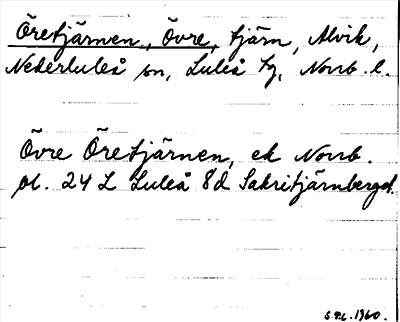 Öretjärnen, Övre, tjärn, Alvik,
Nederluleå sn, Luleå tg, Norrb. l.
Övre Öretjärnen, ek Norrb.
bl. 24 L Luleå 8d Sakritjärnberget.
S.P.L. 1960.